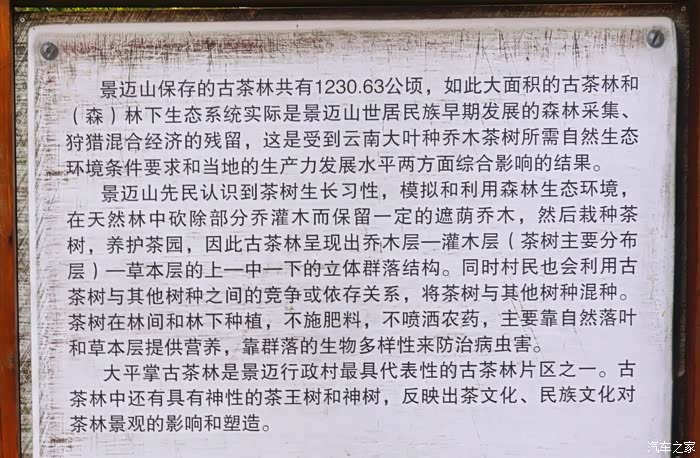 景迈山保存的古茶林共有1230.63公顷，如此大面积的古茶林和
（森）林下生态系统实际是景迈山世居民族早期发展的森林采集、
狩猎混合经济的残留，这是受到云南大叶种乔木茶树所需自然生态
环境条件要求和当地的生产力发展水平两方面综合影响的结果。
景迈山先民认识到茶树生长习性，模拟和利用森林生态环境，
在天然林中砍除部分乔灌木而保留一定的遮荫乔木，然后栽种茶
树，养护茶园，因此古茶林呈现出乔木层—灌木层（茶树主要分布
层）—草本层的上—中—下的立体群落结构。同时村民也会利用古
茶树与其他树种之间的竞争或依存关系，将茶树与其他树种混种。
茶树在林间和林下种植，不施肥料，不喷洒农药，主要靠自然落叶
和草本层提供营养，靠群落的生物多样性来防治病虫害。
大平掌古茶林是景迈行政村最具代表性的古茶林片区之一。古
茶林中还有具有神性的茶王树和神树，反映出茶文化、民族文化对
茶林景观的影响和塑造。
汽车之家